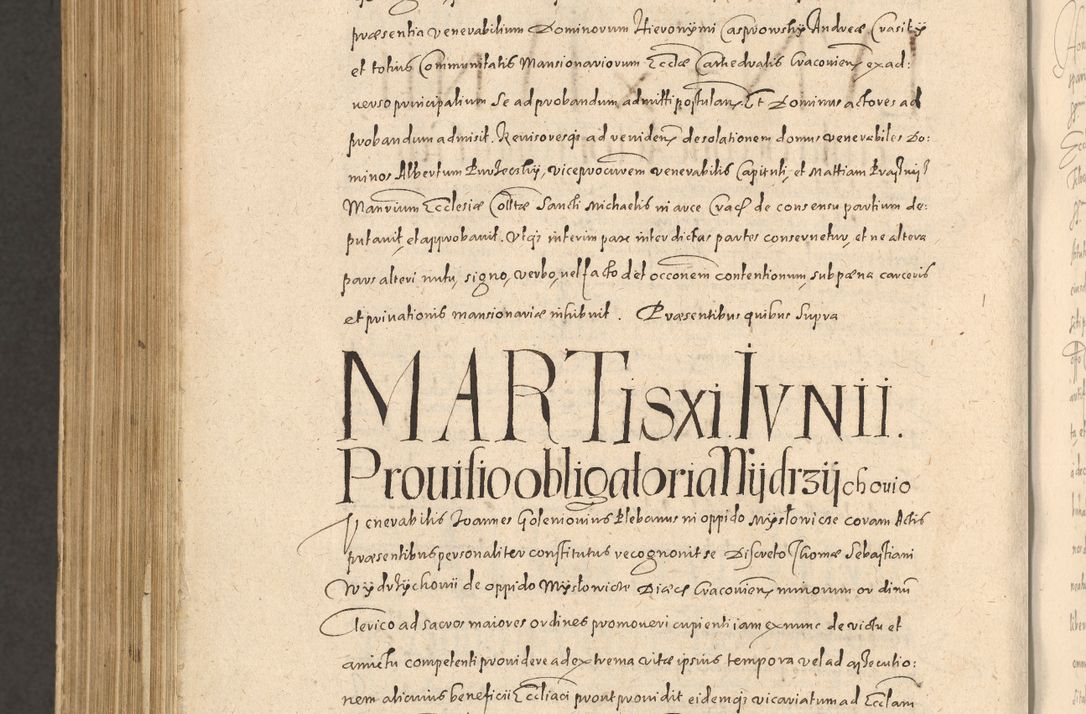 præsentia venerabilium Dominorum Hieronymi Casprowsky Andreæ Crasity
et totius Communitatis Mansionariorum Ecclæ Cathedralis Cracovien, ex ad:
uerso principalium se ad probandum admitti postulan. Et Dominus actores ad
probandum admisit. Revisoresq; ad videndę desolationem domus venerabiles Do:
minos Albertum, viceprocurem venerabilis Capituli, et Mattiam
Manrium Ecclesiæ Colltæ Sancti Michaelis in arce Crac de consensu partium de:
putauit, et approbauit. Utq; interim pax inter dictas partes conservetur, et ne altera
pars alteri nutu, signo, verbo, uel facto det occonem contentionum, sub pæna carceris
et priuationis mansionariæ inhibuit. Præsentibus quibus supra
MARTis xi. IVNII.
Prouisio obligatoria Wijdrzijchouio
Venerabilis Joannes Goleniouius Plebanus in oppido Mysłowicze coram Actis
præsentibus personaliter constitutus recognouit se Discreto Thomæ Sebastiani
Wydrzychouii de oppido Mysłowicze Diæc Cracovien, minorum ordinu
Clerico ad sacros maiores ordines promoueri cupienti iam ex nunc de victu et
amictu competenti prouidere ad extrema vitæ ipsius tempora vel ad assecutio:
nem alicuius beneficii Eccliaci prout prouidit eidemq; vicariatum ad Ecclam